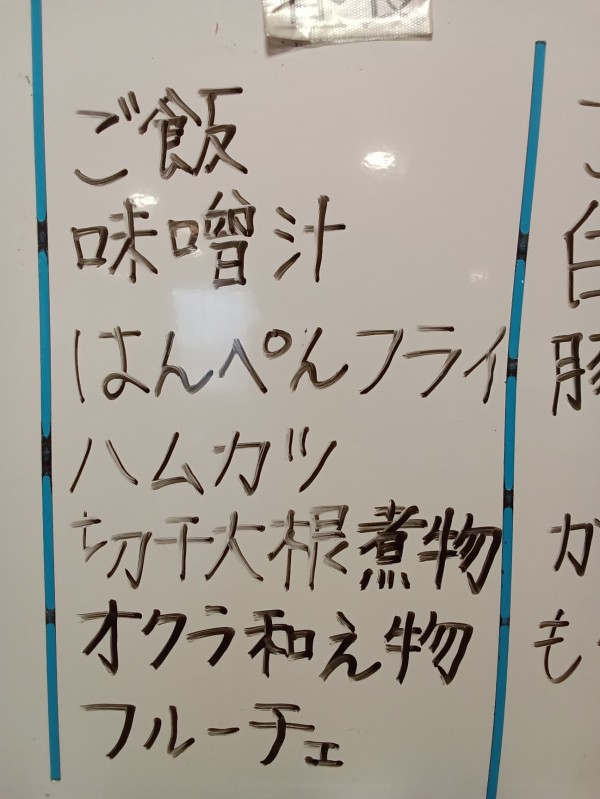 ご飯
味噌汁
はんぺんフライ
ハムカツ
切干大根煮物
オクラ和え物
フルーチェ
豚
か
も